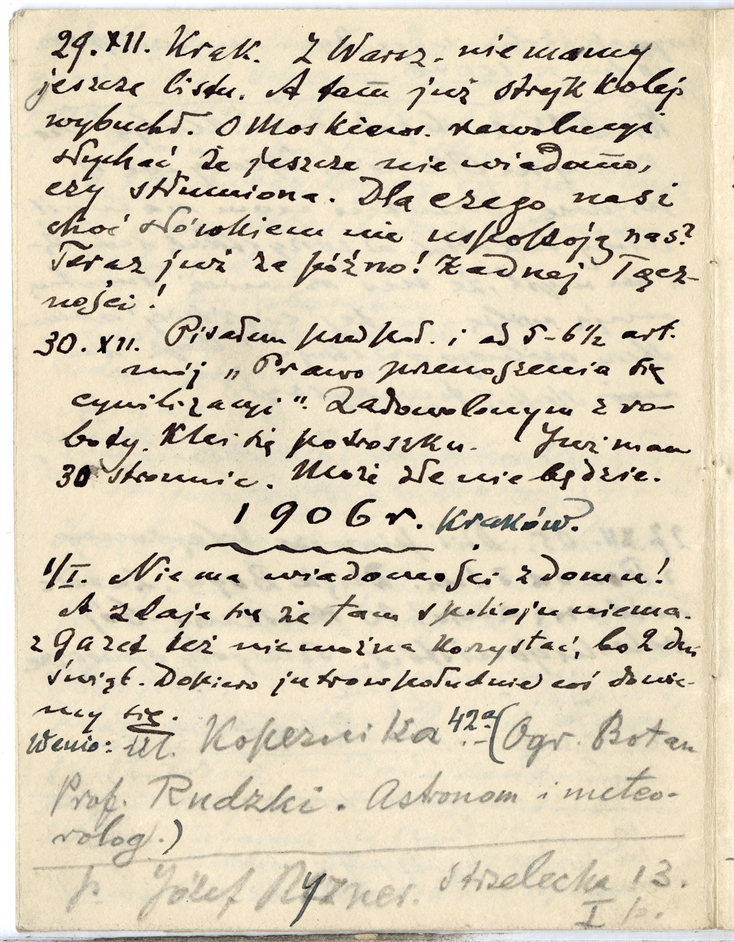 29.XII. Krak. Z Warsz. nie mamy
jeszcze listu. A tam już strejk kolej
wybuchł. O Moskiews. rewolucyi
słychać że jeszcze nie wiadomo,
czy stłumiona. Dlaczego nasi
choć słówkiem nie uspokoją nas?
Teraz już za późno! Żadnej Łącz-
ności!
30.XII. Pisałem przedpoł. i od 5-6½ art.
mój „Prawo przenoszenia się
cywilizacyi". Zadowolonym z ro-
boty. Klei się potroszku. Już mam
30 stronnic. Może źle nie będzie.
1906 r. Kraków.
1/I. Nie ma wiadomości z domu!
A zdaje się że tam spokoju niema.
z Gazet też nie można korzystać, bo 2 dni
świąt. Dopiero jutro w południe coś dowie-
my się.
Wenio: Ul. Kopernika 42a (Ogr. Botan
Prof. Rudzki. Astronom i meteo-
rolog.)
p. Józef Ryzner. Strzelecka 13.
I p.